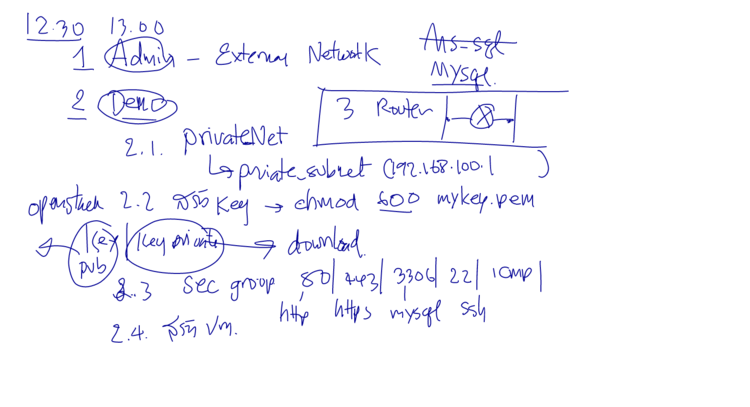 12.30 13.00
1 Admin - External Network
Ans-sql
Mysql.
2 Demo
3 Router
2.1. privateNet
private_subnet (192.168.100.1 )
openstack 2.2 สร้าง Key → chmod 600 mykey.pem
Key pub | Key private → download.
2.3 Sec group 80 | 443 | 3306 | 22 | icmp |
http https mysql ssh
2.4. สร้าง Vm.